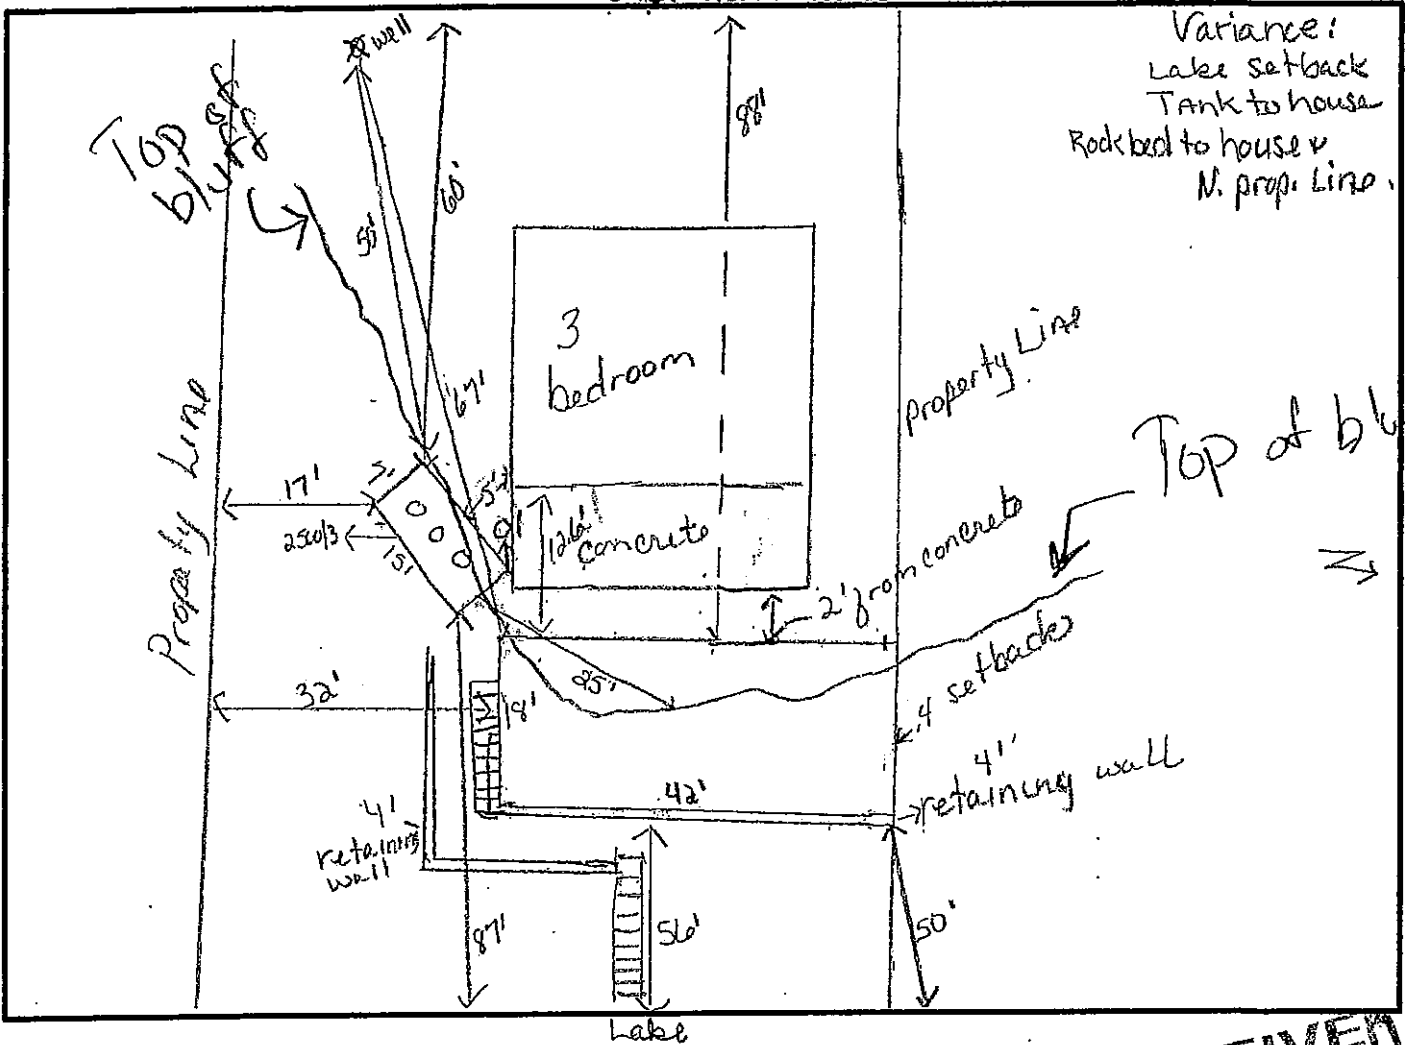 Variance:
Lake setback
Tank to house
Rockbed to house &
N. prop. Line.
well
Top of
bluff
55'
60'
88'
3
bedroom
67'
Property Line
Property Line
Top of blu
17'
5'
5'
2500/3
15'
9'
12.6'
concrete
2' from concrete
N
32'
18'
25'
4' setback
42'
4'
retaining wall
4'
retaining
wall
87'
56'
50'
Lake